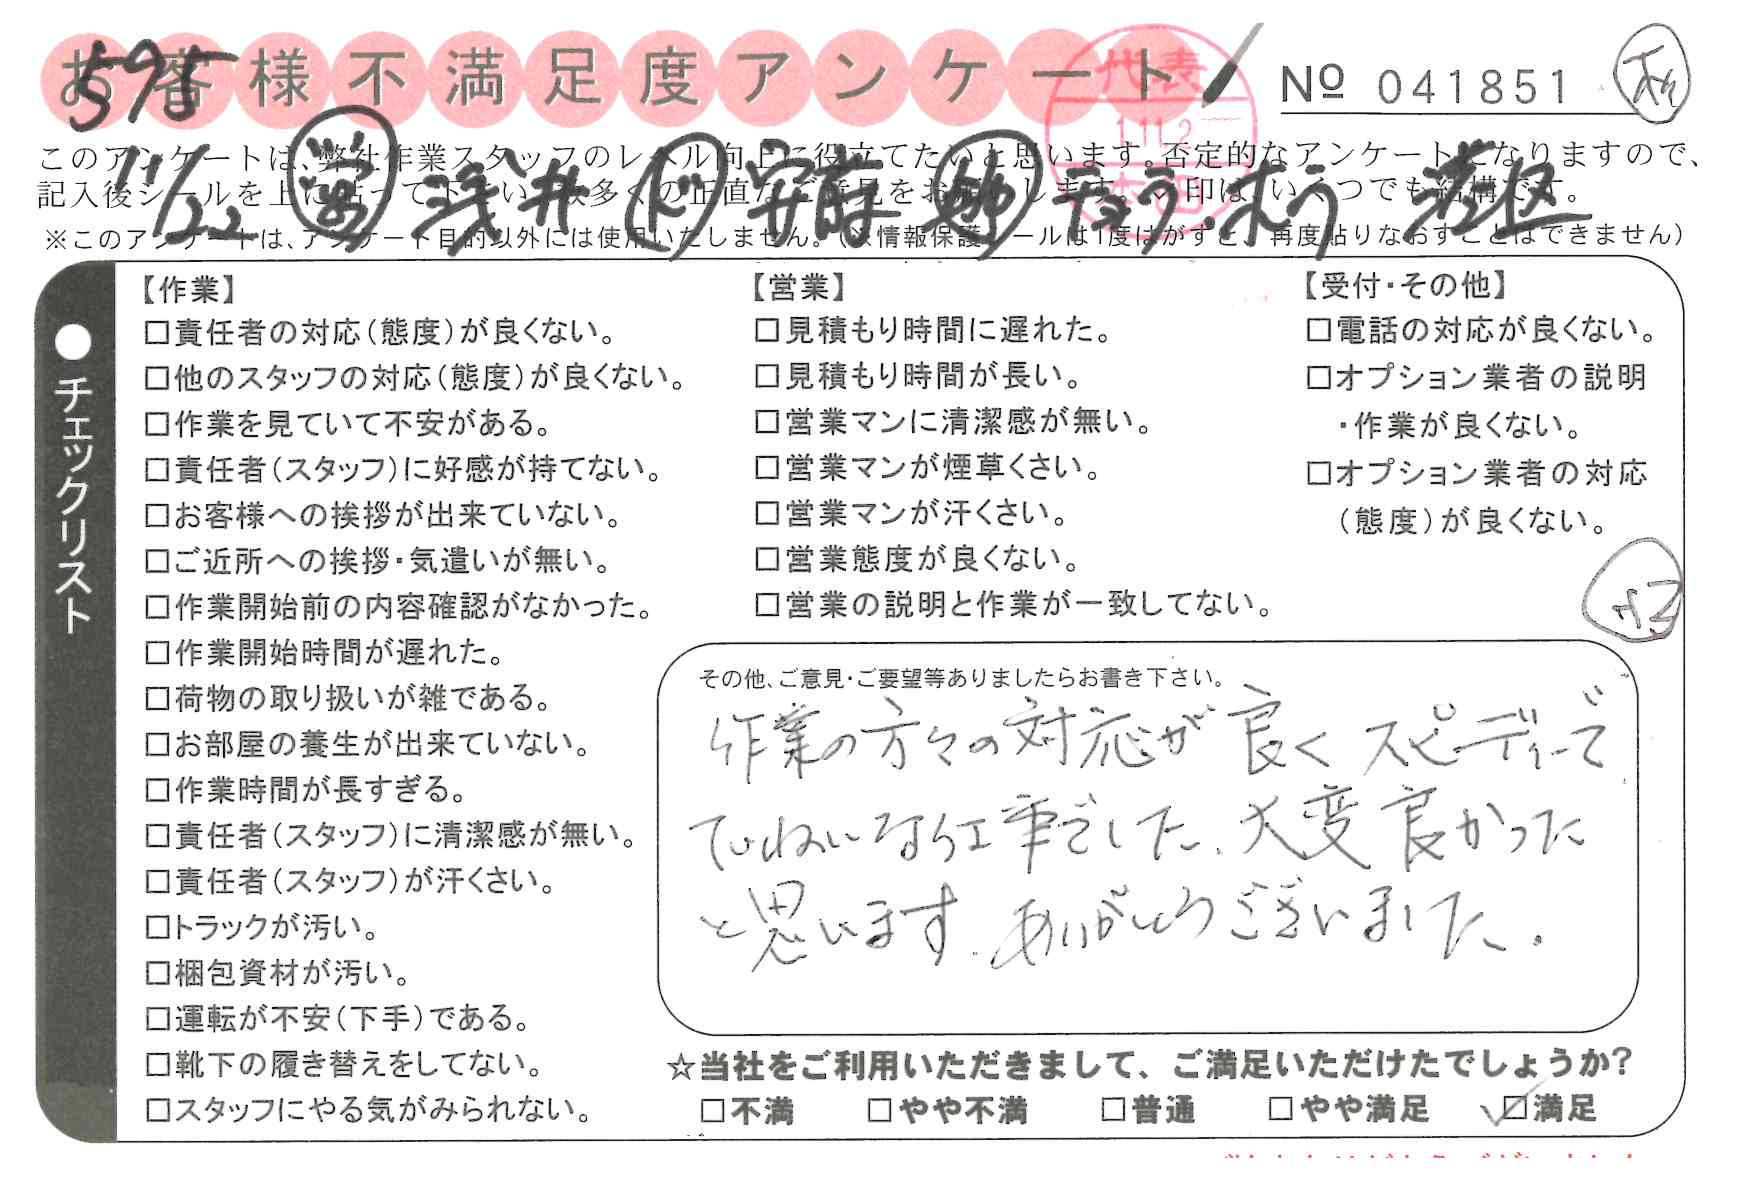 お客様不満足度アンケート
№ 041851
595
代表
1.11.2
本田
このアンケートは、弊社作業スタッフのレベル向上に役立てたいと思います。否定的なアンケートになりますので、
記入後シールを上に貼って下さい。数多くの正直なご意見をお願いします。✓印は、いくつでも結構です。
11/22 浅井 ド 安存 港区
※このアンケートは、アンケート目的以外には使用いたしません。(※情報保護シールは1度はがすと、再度貼りなおすことはできません)
●チェックリスト
【作業】
□責任者の対応(態度)が良くない。
□他のスタッフの対応(態度)が良くない。
□作業を見ていて不安がある。
□責任者(スタッフ)に好感が持てない。
□お客様への挨拶が出来ていない。
□ご近所への挨拶・気遣いが無い。
□作業開始前の内容確認がなかった。
□作業開始時間が遅れた。
□荷物の取り扱いが雑である。
□お部屋の養生が出来ていない。
□作業時間が長すぎる。
□責任者(スタッフ)に清潔感が無い。
□責任者(スタッフ)が汗くさい。
□トラックが汚い。
□梱包資材が汚い。
□運転が不安(下手)である。
□靴下の履き替えをしてない。
□スタッフにやる気がみられない。
【営業】
□見積もり時間に遅れた。
□見積もり時間が長い。
□営業マンに清潔感が無い。
□営業マンが煙草くさい。
□営業マンが汗くさい。
□営業態度が良くない。
□営業の説明と作業が一致してない。
【受付・その他】
□電話の対応が良くない。
□オプション業者の説明
・作業が良くない。
□オプション業者の対応
(態度)が良くない。
その他、ご意見・ご要望等ありましたらお書き下さい。
作業の方々の対応が良くスピーディーで
ていねいな仕事でした、大変良かった
と思います。ありがとうございました。
☆当社をご利用いただきまして、ご満足いただけたでしょうか?
□不満 □やや不満 □普通 □やや満足 ☑満足